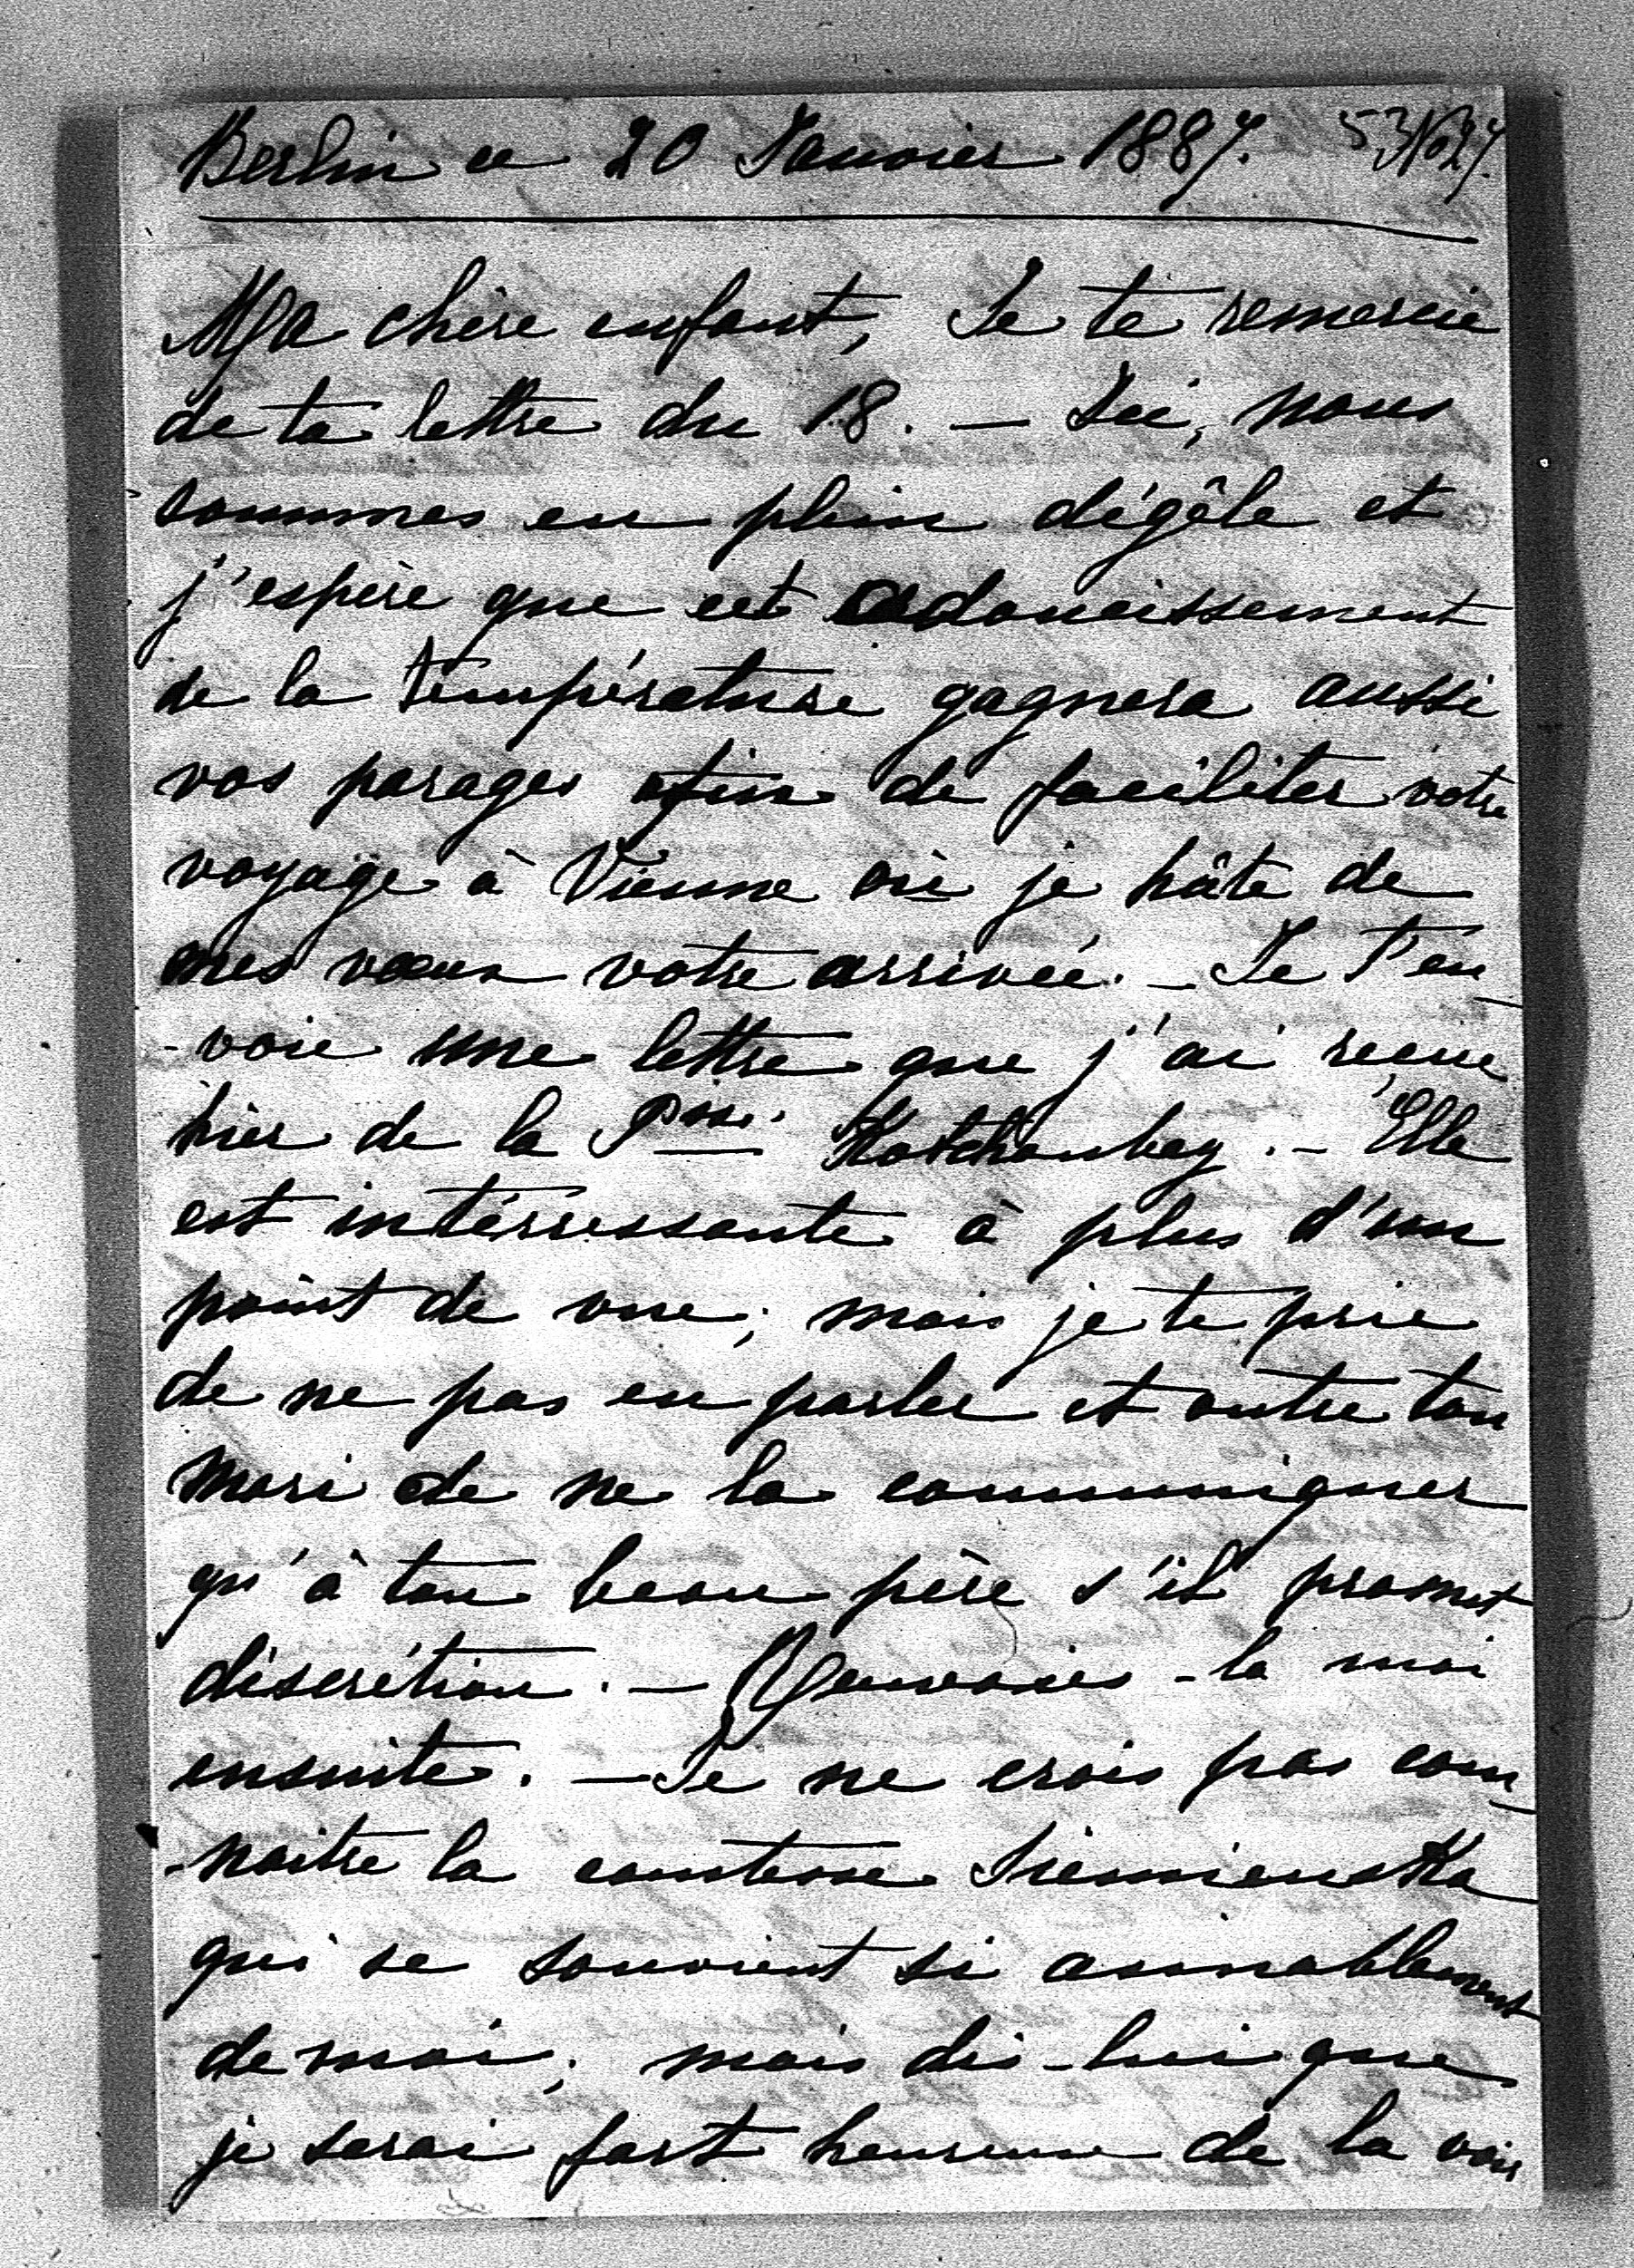 Berlin ce 20 Janvier 1887. 53 No 27.
Ma chère enfant, Je te remercie
de ta lettre du 18. — Ici, nous
sommes en plein dégêle et
j'espère que cet adoucissement
de la température gagnera aussi
vos parages afin de faciliter votre
voyage à Vienne où je hâte de
mes vœux votre arrivée. — Je t'en-
-voie une lettre que j'ai reçue
hier de la Psse. Kotchoubey. — Elle
est intérressante à plus d'un
point de vue; mais je te prie
de ne pas en parler et outre ton
mari de ne la communiquer
qu'à ton beau père s'il promet
discrétion. — Renvoies-la moi
ensuite. — Je ne crois pas con-
-naitre la comtesse Siemienska
qui se souvient si aimablement
de moi; mais dis-lui que
je serai fort heureux de la voir